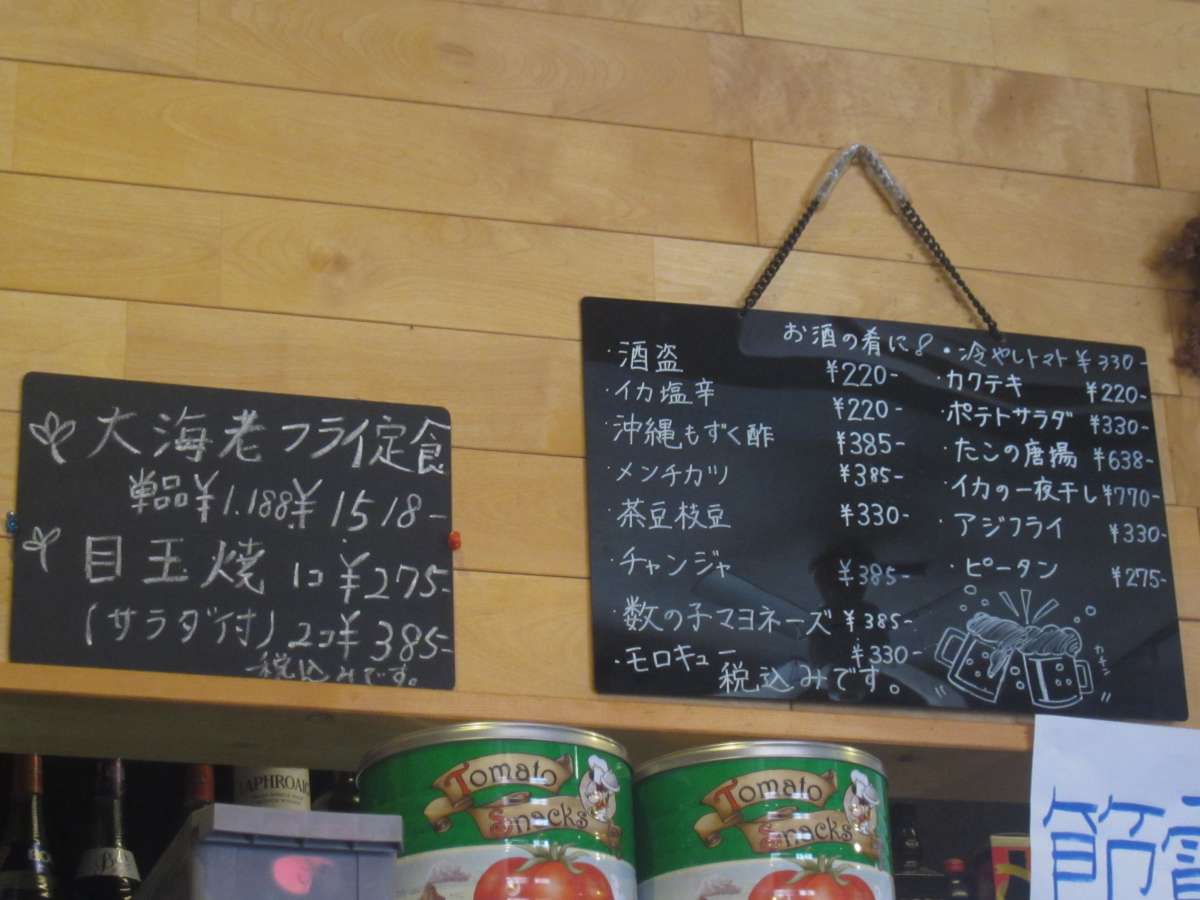 大海老フライ定食
単品¥1.188¥1518-
目玉焼 1コ¥275-
(サラダ付) 2コ¥385-
税込みです。
お酒の肴に
・酒盗 ¥220-
・イカ塩辛 ¥220-
沖縄もずく酢 ¥385-
・メンチカツ ¥385-
・茶豆枝豆 ¥330-
・チャンジャ ¥385-
・数の子マヨネーズ ¥385-
・モロキュー ¥330-
・冷やしトマト ¥330-
・カクテキ ¥220-
・ポテトサラダ ¥330-
・たこの唐揚 ¥638-
・イカの一夜干し ¥770-
・アジフライ ¥330-
・ピータン ¥275-
カチン
税込みです。
Tomato
Snacks
Tomato
Snacks
節